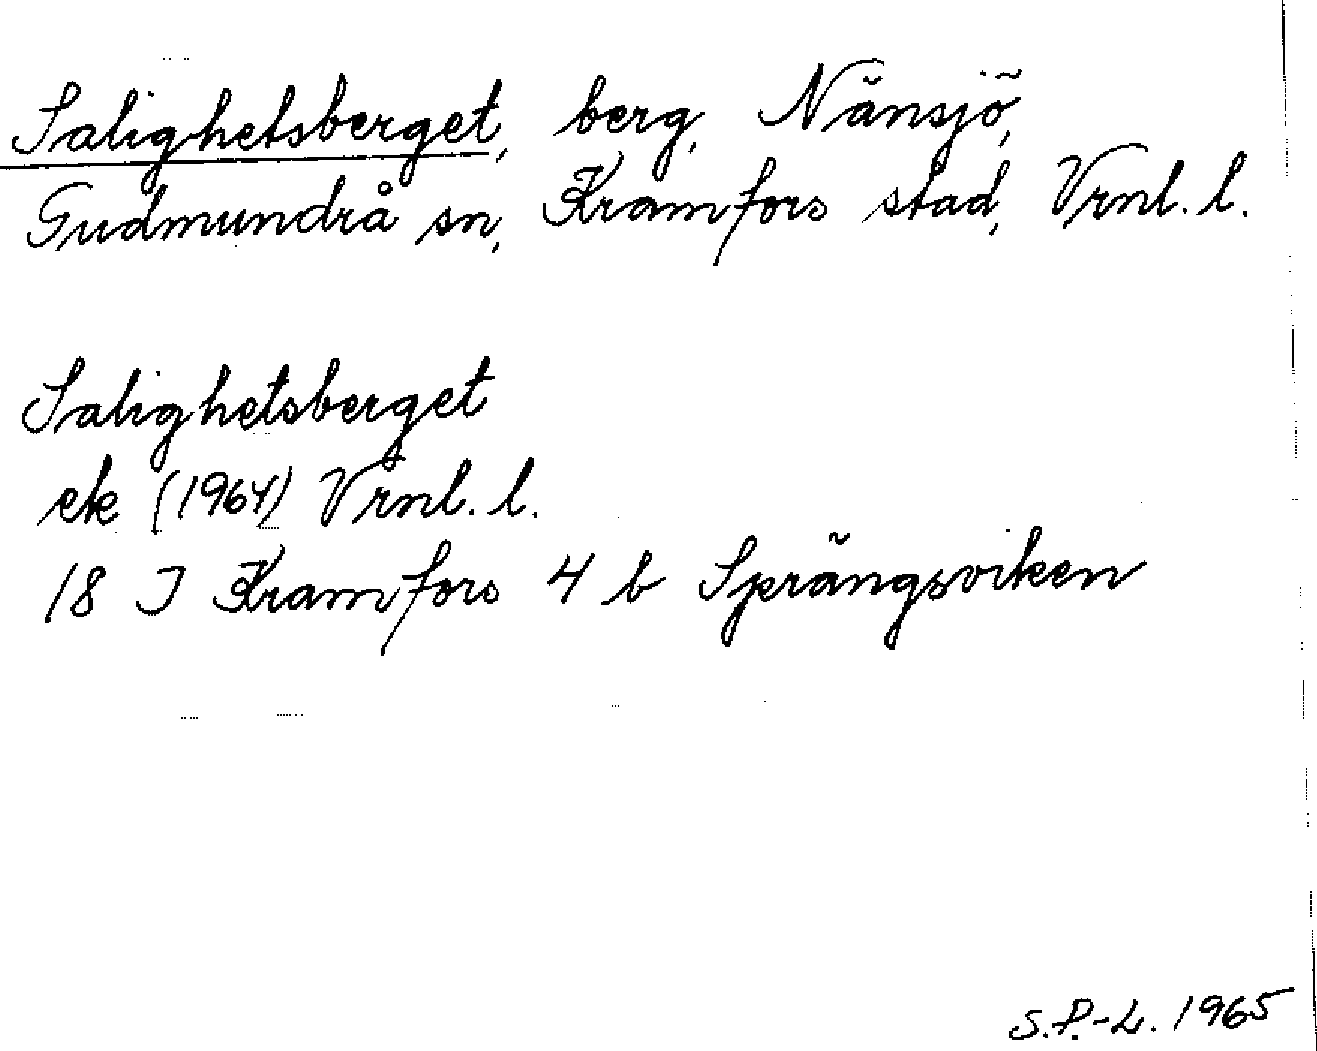 Salighetsberget, berg, Nänsjö,
Gudmundrå sn, Kramfors stad, Vrnl. l.
Salighetsberget
ek (1964) Vrnl. l.
18 J Kramfors 4 b Sprängsviken
S.P.-L. 1965